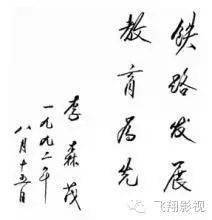 铁路发展
教育为先
李森茂
一九九二年
八月十五日
飞翔影视